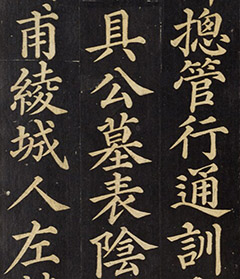 摠管行通訓
具公墓表陰
甫綾城人左